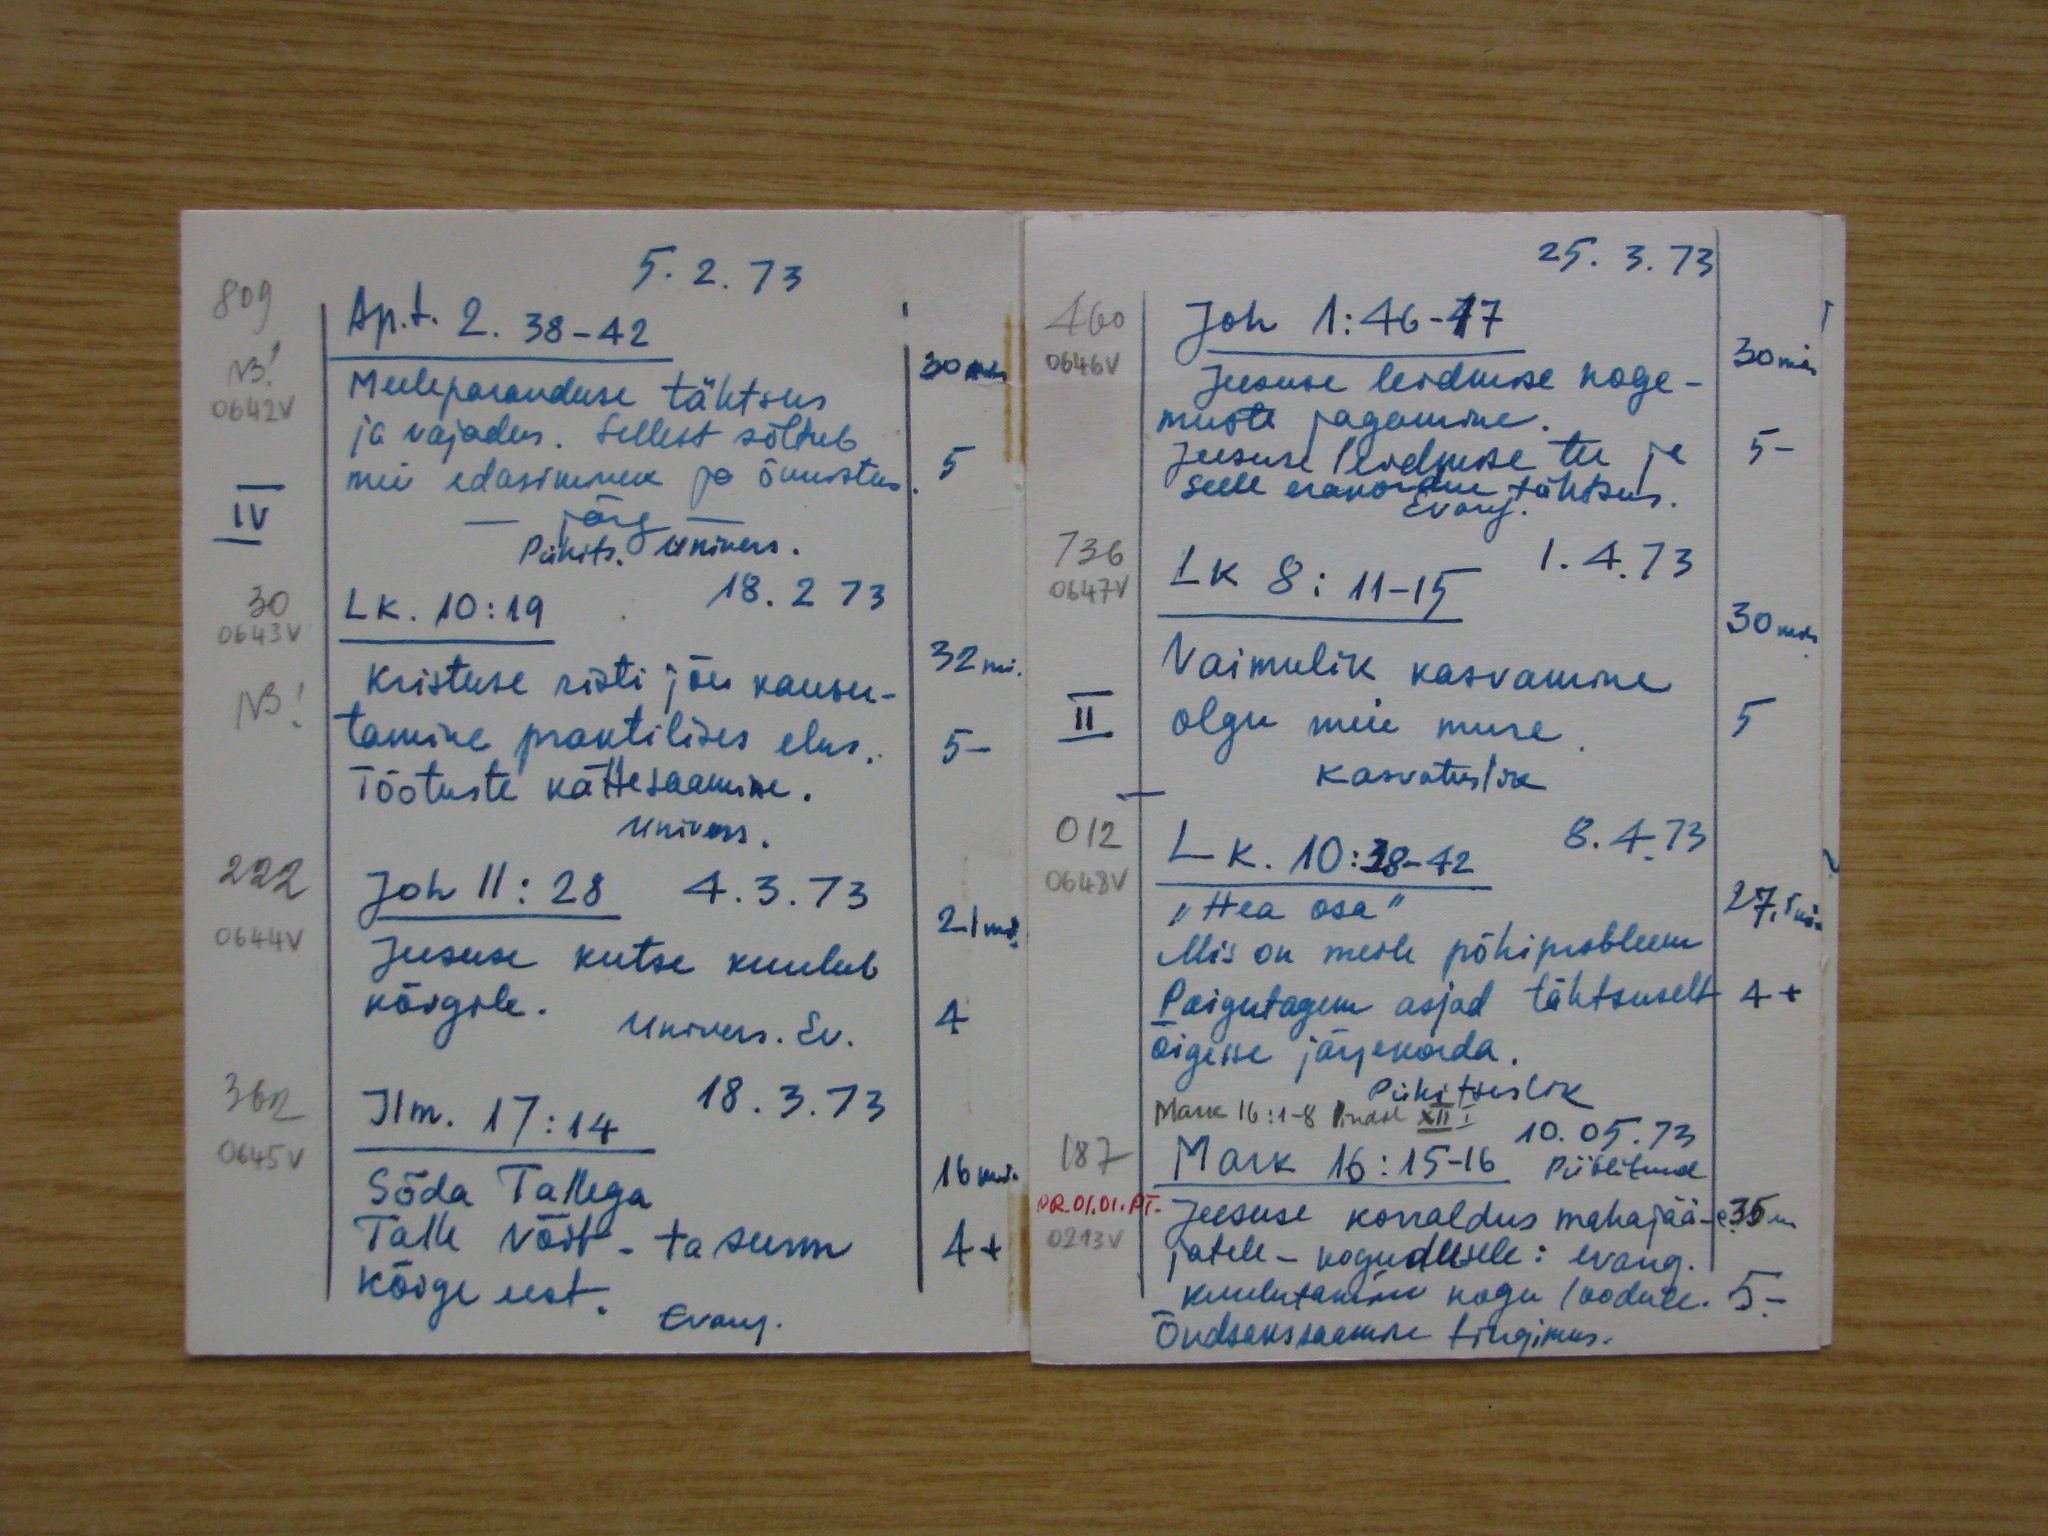 5. 2. 73
809
Ap.t. 2. 38-42
30 min
NB!
0642V
Meeleparanduse tähtsus
ja vajadus. Sellest sõltub
meie edasiminek ja õnnistus.
5
— järg —
IV
Pühits. Univers.
18. 2 73
30
0643V
Lk. 10:19
32 mi.
Kristuse risti jõu kasu-
NB!
tamine praktilises elus.
5-
Tõotuste kättesaamine.
Univers.
222
Joh 11:28 4.3.73
21 min
0644V
Jeesuse kutse kuulub
kõigile.
4
Univers. Ev.
362
Ilm. 17:14 18.3.73
0645V
16 min.
Sõda Tallega
Talle võit - tasumm
4+
kõige eest.
Evang.
25. 3. 73
460
Joh 1:46-47
0646V
30 min
Jeesuse leidmise koge-
muste jagamine.
Jeesuse leidmise tee ja
5-
selle erakordne tähtsus.
Evang.
736
Lk 8: 11-15 1.4.73
0647V
30 min.
Vaimulik kasvamine
II
olgu meie mure.
5
kasvatuslik
012
Lk. 10:38-42 8.4.73
0648V
27,5 min.
"Hea osa"
Mis on meile põhiprobleem
Paigutagem asjad tähtsuselt
4+
õigesse järjekorda.
Pühitsuslik
Mark 16:1-8 XII I
10.05.73
187
Mark 16:15-16 Piiblitund
DR.01.01.PT.
0213V
Jeesuse korraldus mahajää-
35 m
jatele - kogudusele: evang.
kuulutamine kogu loodule.
5-
Õndsakssaamise tingimus.